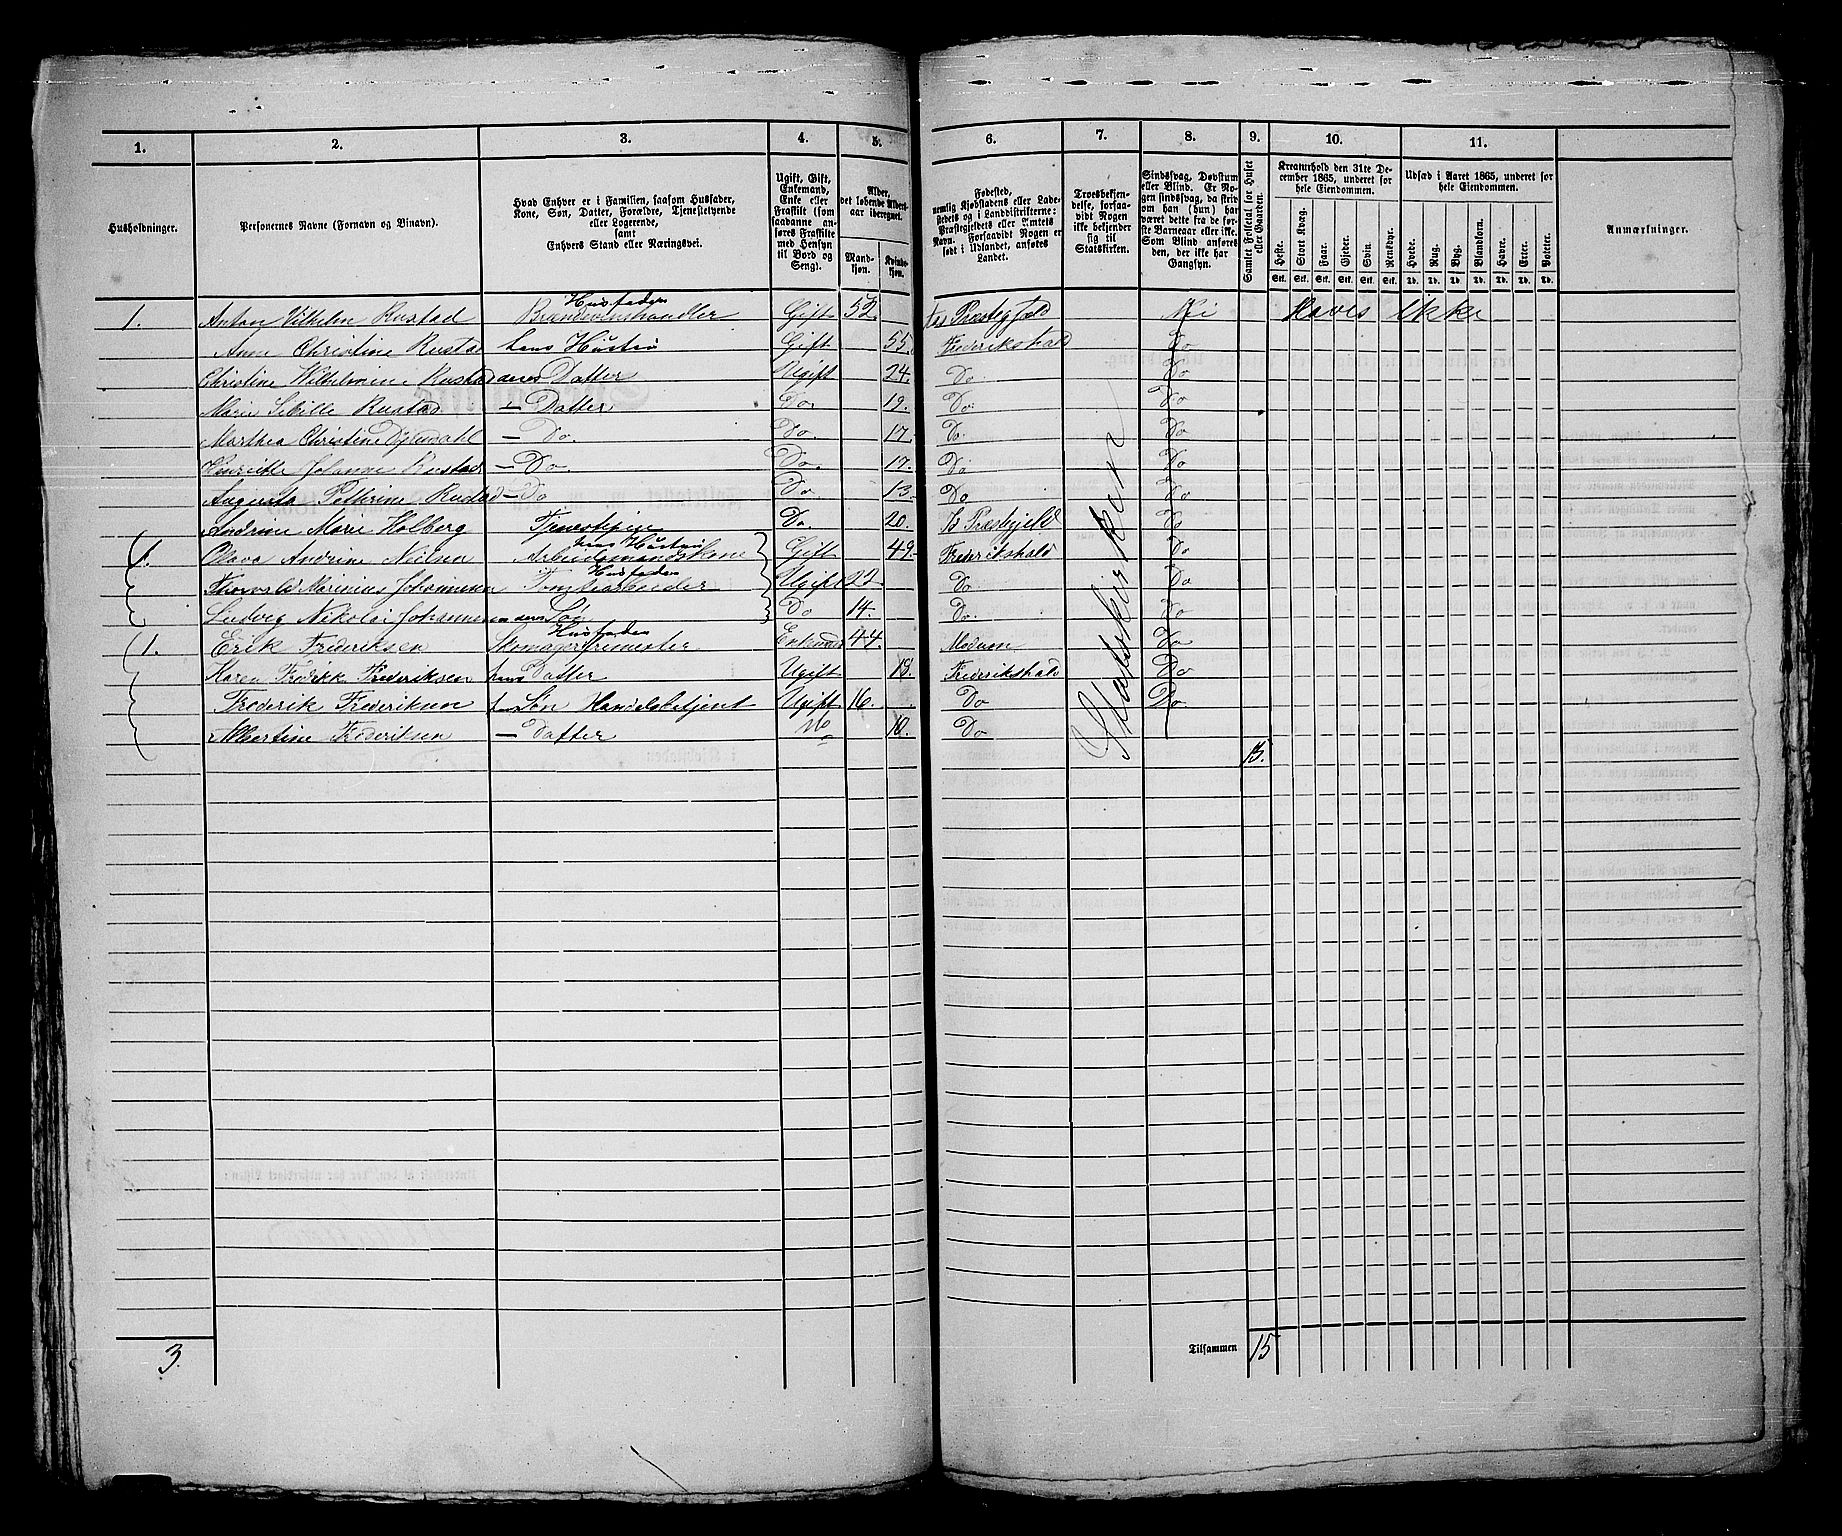 1. 2. 3. 4. 5. 6. 7. 8. 9. 10. 11.
Husholdninger.
Personernes Navne (Fornavn og Tilnavn).
Hvad Enhver er i Familien, saasom Husfader, Kone, Søn, Datter, Forældre, Tjenestetyende eller Logerende, samt Enhvers Stand eller Næringsvei.
Ugift, Gift, Enkemand, Enke eller Fraskilt (som saadanne anføres Fraskilte med Hensyn til Bord og Seng).
Alder, det løbende Alders-aar iberegnet.
Mand-kjøn. Kvinde-kjøn.
Fødested, nemlig Kjøbstadens eller Ladestedets og i Landdistrikterne: Præstegjeldets eller Amtets Navn. Forsaavidt Nogen er født i Udlandet, anføres Landet.
Troesbekjendelse, forsaavidt Nogen ikke bekjender sig til Statskirken.
Sindssvag, Døvstum eller Blind. Er Nogen sindssvag, da skrives om han (hun) har været dette fra de første Barneaar eller ikke. Som Blind anføres den, der ikke har Gangsyn.
Samlet Folketal for Huset eller Gaarden.
Kreaturhold den 31te December 1865, underet for hele Eiendommen.
Heste. Stort Kvæg. Faar. Gjeder. Svin. Rensdyr.
Stk. Stk. Stk. Stk. Stk. Stk.
Udsæd i Aaret 1865, underet for hele Eiendommen.
Hvede. Rug. Byg. Blandkorn. Havre. Erter. Poteter.
Td. Td. Td. Td. Td. Td. Td.
Anmærkninger.
1. Anton Vilhelm Rustad Husfader Brændeviinshandler Gift 52. Præstegjæld Nei Haves Ikke
Anne Christine Rustad hans Hustru Gift 55. Frederikshald Do
Christine Wilhelmine Rustad deres Datter Ugift 24. Do. Do
Marie Sibille Rustad — Datter Do. 19. Do. Do
Marthea Christine Dyrendahl — Do. Do. 17. Do. Do
Henriette Johanne Rustad — Do Do. 17. Do Do
Augusta Pethrine Rustad — Do Do 13. Do Do
Andrine Marie Holberg Tjenestepige Do. 20. Præstegjeld Do
1. Olava Andrine Nielsen hans Hustru Arbeidsmandskone Gift 49. Frederikshald Do
Thorvald Marinius Johannesen Husfader Tomtearbeider Ugift 22. Do Do
Ludvig Nikolai Johannesen Søn Do 14. Do. Do
1. Erik Frederiksen Husfader Skomagersvemester Enkemd 44. Modum Do
Karen Fredrikk Frederiksen hans Datter Ugift 18. Frederikshald Do
Frederik Frederiksen Søn Handelsbetjent Ugift 16. Do Do
Albertine Frederiksen — Datter Do 10. Do
Statskirken
15.
3.
Tilsammen 15